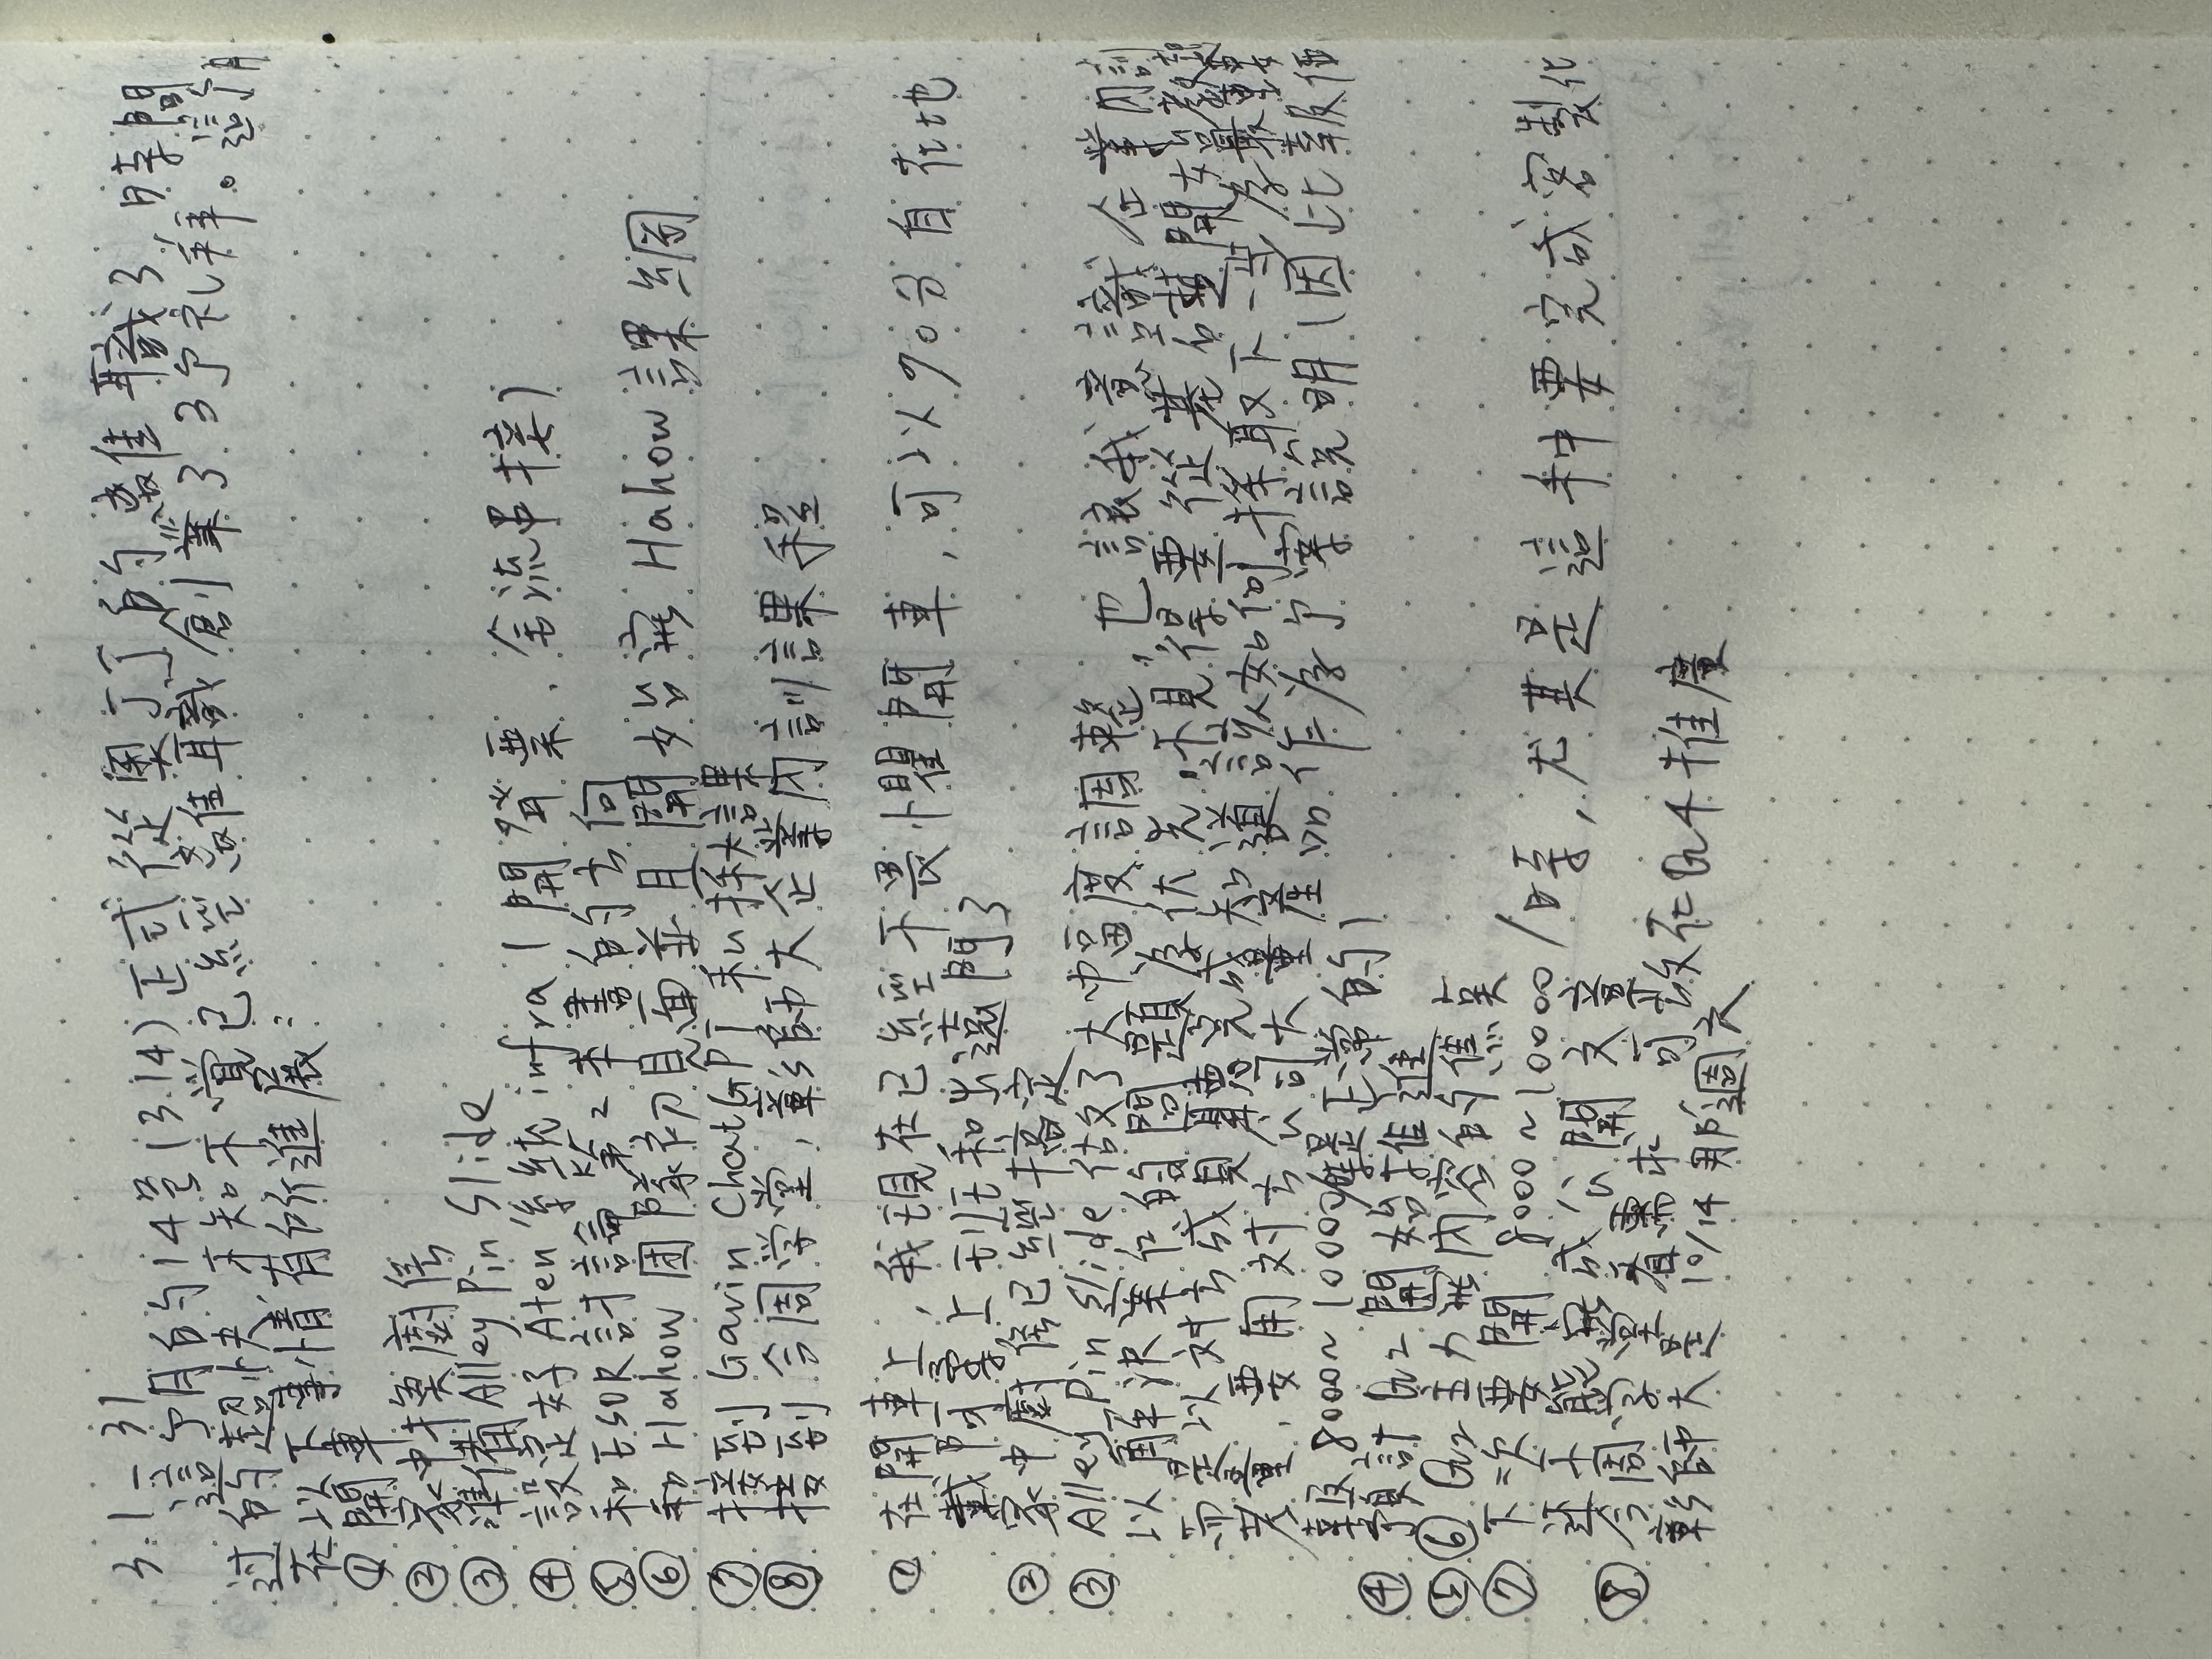 3.1 - 31
這个月的14号(3.14)正式從奧丁丁的離職了, 時間
过的超快, 不知不覺已經離職創業了3个礼拜。這个月
在以下事情有所進展:
① 開車
② 家中換廚房
③ 準備 Alley Pin Slide
④ 設定好 Aten 系統 infra (開發票、金流串接)
⑤ 和 ESOR 討論第2本書的方向
⑥ 和 Hahow 团隊初見面並且開始寫 Hahow 課綱
⑦ 接到 Gavin ChatGPT 私塾課
⑧ 接到 今周学堂, 彰師大企業內訓課程
① 在開車上, 我現在已經不畏懼開車, 可以90分自在地
載阿柔上班和出遠門了
② 家中廚房已經搞定
③ Alley Pin Slide 做了大幅度調整, 也讓我意識企業內訓
以解決案仁的問題為优先, 不見得要從基礎開始教起
而是以对方成員聽完或知道該如何採取下一步為最重要
考量, 要用对方公司大量產品作為个案說明(因此報價
報 8000~10000 是正常的)
④ 預計 Q2 開始推進
⑤⑥ Q2 主力寫內容的焦点
⑦ 下次要開 8000~10000/時, 尤其是這种要完成客製化
还不能寫成公開文章
⑧ 今周学堂看需求, 可放在Q4推廣
彰師大是 10/14 那週六